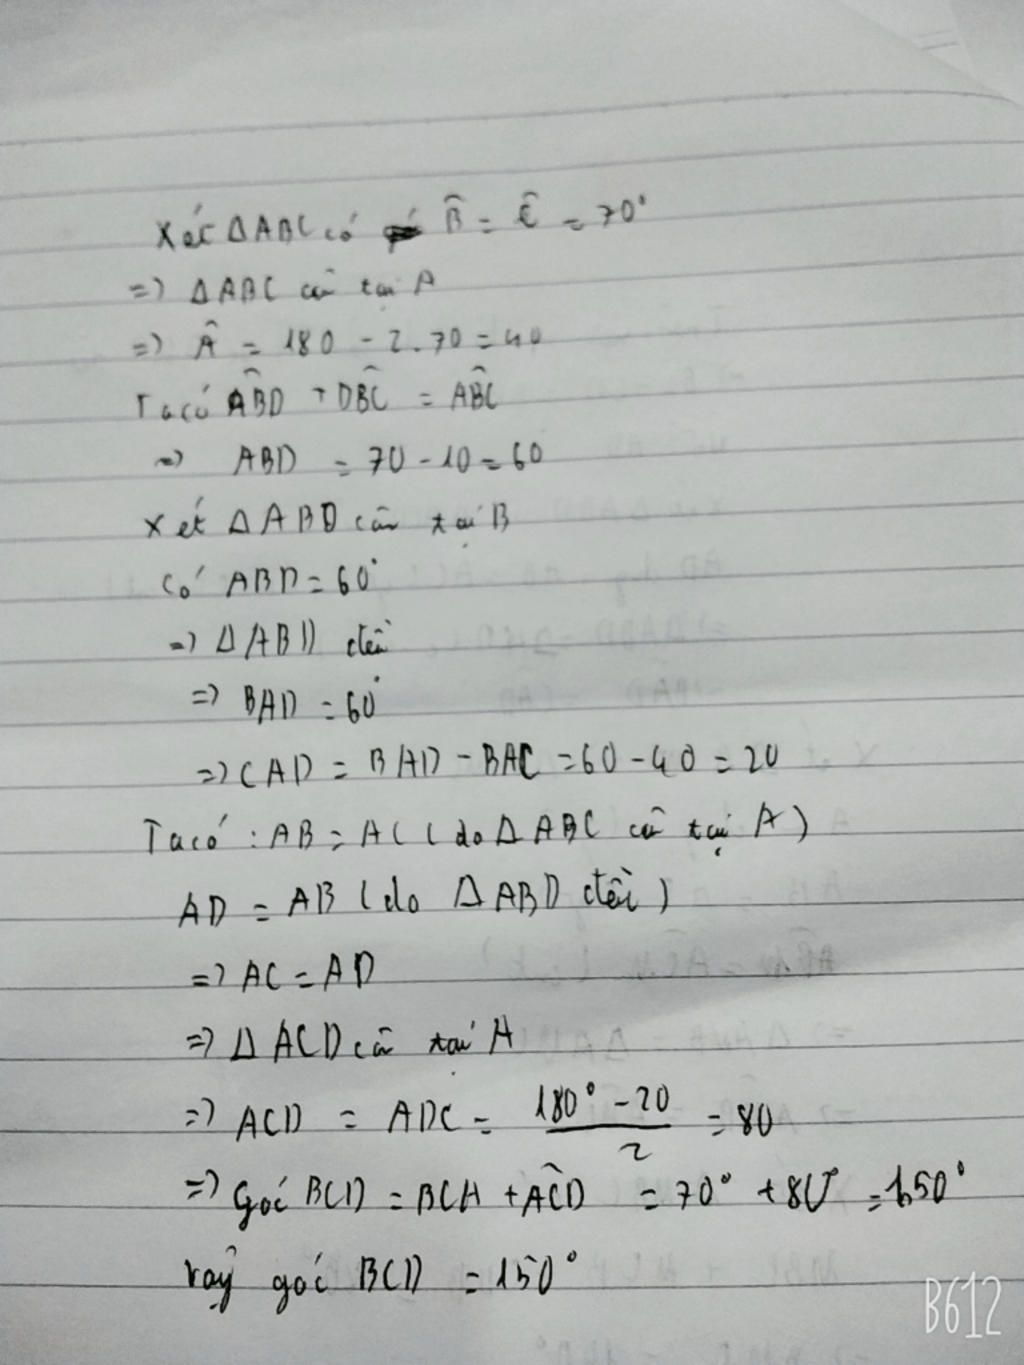 Xét ΔABC có B̂ = Ĉ = 70°
=) ΔABC cân tại A
=) Â = 180 - 2.70 = 40
Ta có ABD + DBC = ABC
=) ABD = 70 - 10 = 60
Xét ΔABD cân tại B
Có ABD = 60°
=) ΔABD đều
=) BAD = 60°
=) CAD = BAD - BAC = 60 - 40 = 20
Ta có : AB = AC ( do ΔABC cân tại A )
AD = AB ( do ΔABD đều )
=) AC = AD
=) ΔACD cân tại A
=) ACD = ADC = (180° - 20)/2 = 80
=) góc BCD = BCA + ACD = 70° + 80° = 150°
vậy góc BCD = 150°
B612